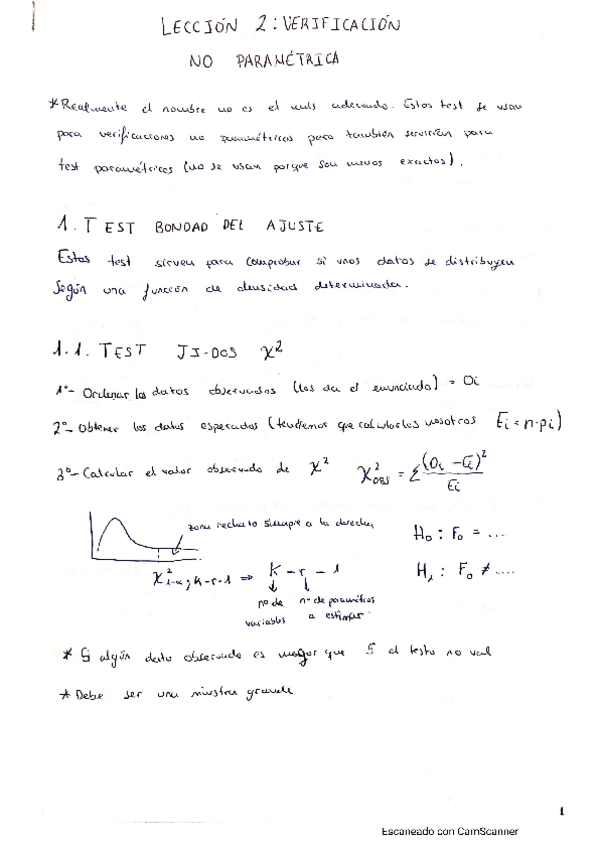 LECCIÓN 2: VERIFICACIÓN
NO PARAMÉTRICA
*Realmente el nombre no es el más adecuado. Estos test se usan
para verificaciones no paramétricas pero también servirían para
test paramétricos (no se usan porque son menos exactos).
1. TEST BONDAD DEL AJUSTE
Estos test sirven para comprobar si unos datos se distribuyen
según una función de densidad determinada.
1.1. TEST JI-DOS χ²
1º- Ordenar los datos observados (los da el enunciado) = Oi
2º- Obtener los datos esperados (tendremos que calcularlos nosotros Ei = n·pi)
3º- Calcular el valor observado de χ² χ²OBS = Σ (Oi - Ei)² / Ei
zona rechazo siempre a la derecha
H₀ : F₀ = ...
χ²1-α; k-r-1 ⇒ K - r - 1
H₁ : F₀ ≠ ....
nº de nº de parámetros
variables a estimar
* Si algún dato observado es mayor que 5 el testo no val
* Debe ser una muestra grande
1
Escaneado con CamScanner